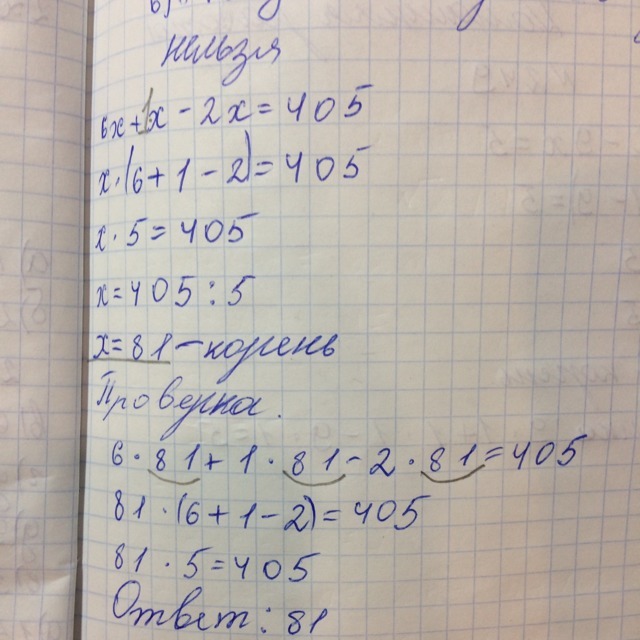 нельзя
6x+1x-2x=405
x·(6+1-2)=405
x·5=405
x=405:5
x=81-корень
Проверка.
6·81+1·81-2·81=405
81·(6+1-2)=405
81·5=405
Ответ: 81